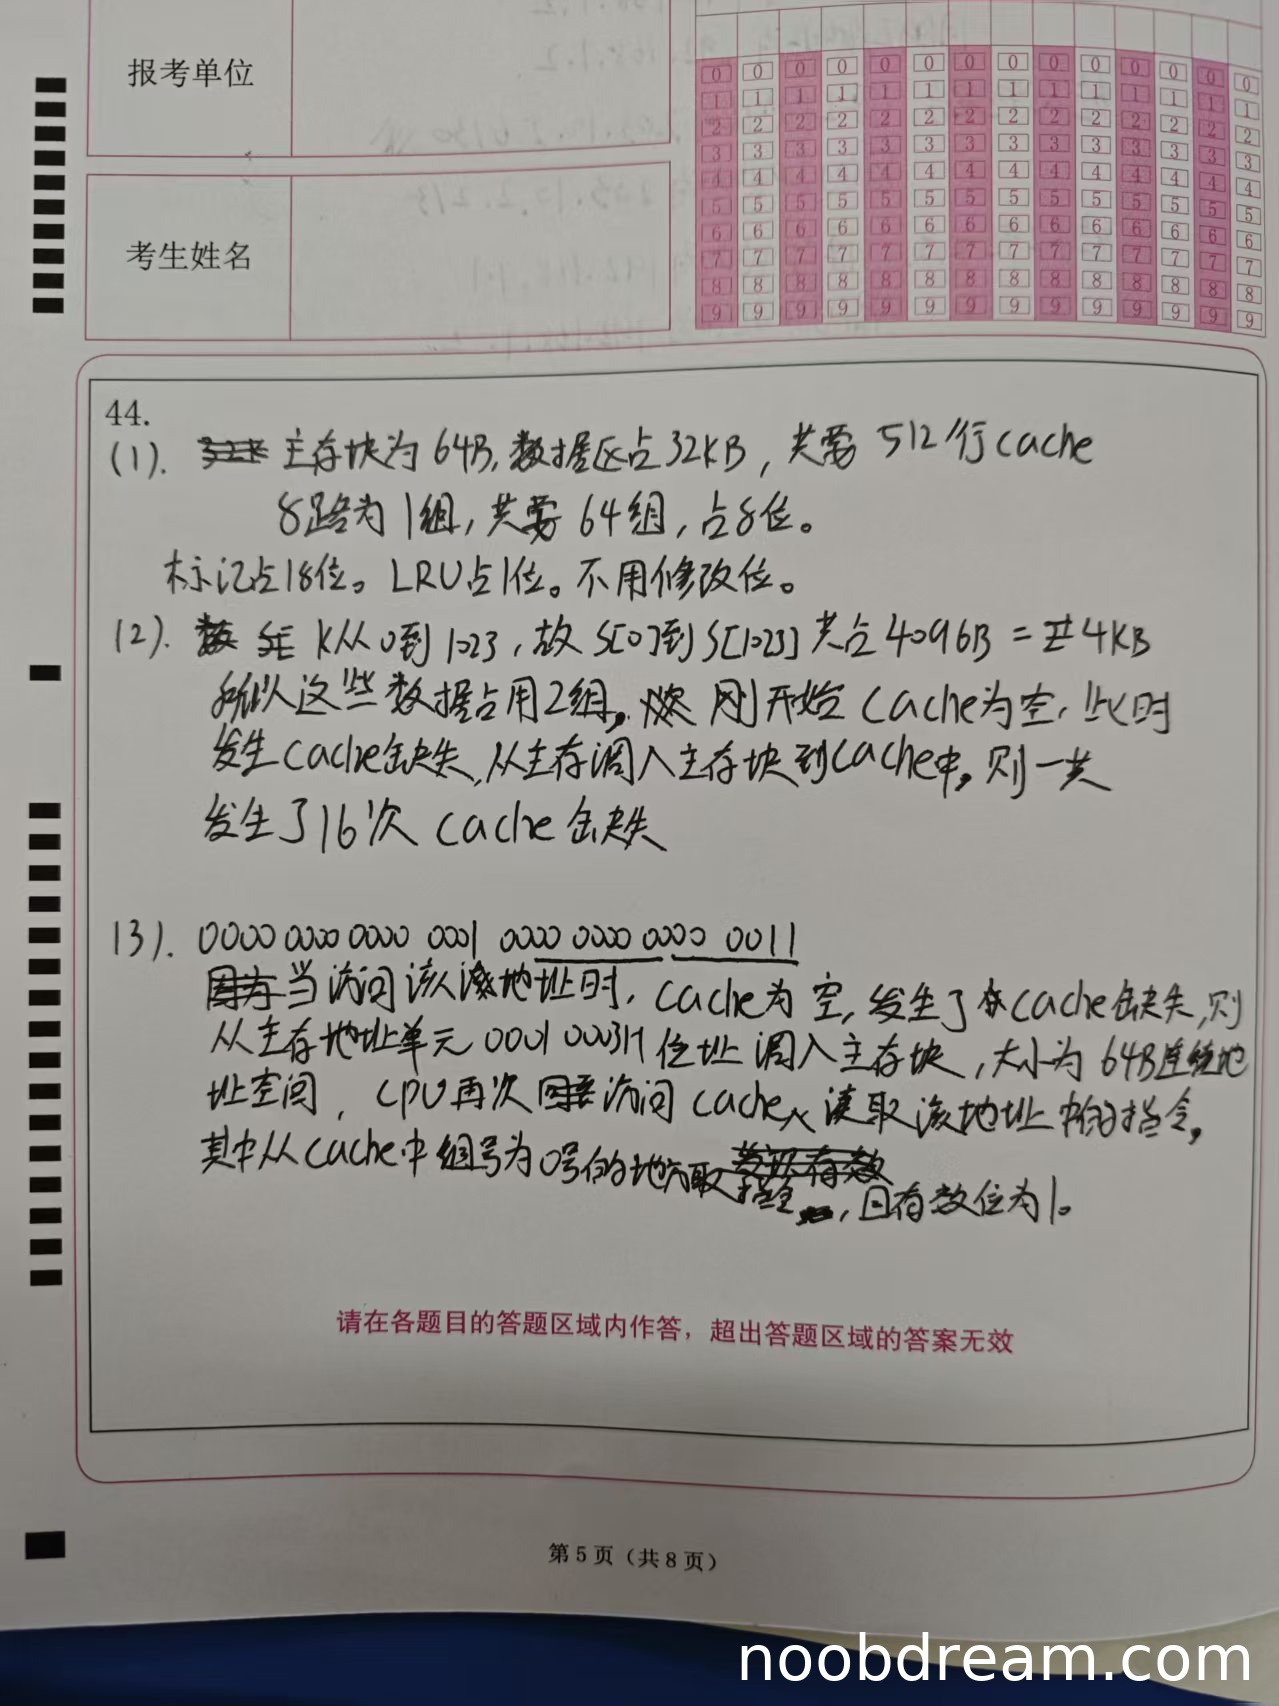 报考单位
考生姓名
0 0 0 0 0 0 0 0 0 0 0 0 0 0
1 1 1 1 1 1 1 1 1 1 1 1 1 1
2 2 2 2 2 2 2 2 2 2 2 2 2 2
3 3 3 3 3 3 3 3 3 3 3 3 3 3
4 4 4 4 4 4 4 4 4 4 4 4 4 4
5 5 5 5 5 5 5 5 5 5 5 5 5 5
6 6 6 6 6 6 6 6 6 6 6 6 6 6
7 7 7 7 7 7 7 7 7 7 7 7 7 7
8 8 8 8 8 8 8 8 8 8 8 8 8 8
9 9 9 9 9 9 9 9 9 9 9 9 9 9
44.
(1). 主存块为64B,数据区占32KB,共需512行cache
8路为1组,共需64组,占8位。
标记占18位。LRU占1位。不用修改位。
(2). K从0到1023,故S[0]到S[1023]共占4096B=4KB
所以这些数据占用2组,刚开始Cache为空,此时
发生Cache缺失,从主存调入主存块到Cache中,则一共
发生了16次Cache缺失
(3). 0000 0000 0000 0001 0000 0000 0000 0011
当访问该地址时,Cache为空,发生了Cache缺失,则
从主存地址单元0001 0003H位址调入主存块,大小为64B连续地
址空间,CPU再次访问Cache,读取该地址中的指令,
其中从Cache中组号为0号的地方取指令,且有效位为1。
请在各题目的答题区域内作答,超出答题区域的答案无效
第5页(共8页)
noobdream.com